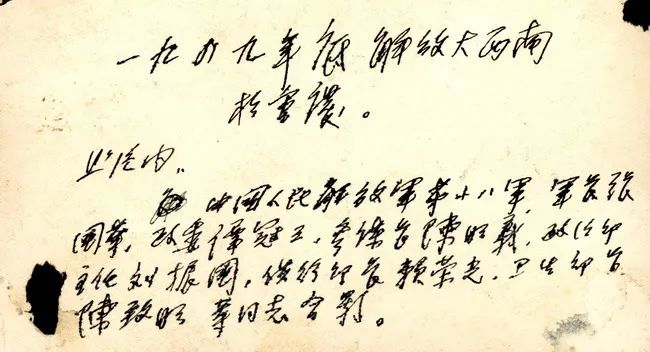 一九四九年底 解放大西南
中国人民解放军第十八军，军长张
国华，政委谭冠三，参谋长陳明義，政治部
主任刘振国，供给部长赖荣光，卫生部长
陳致明 等同志合影。